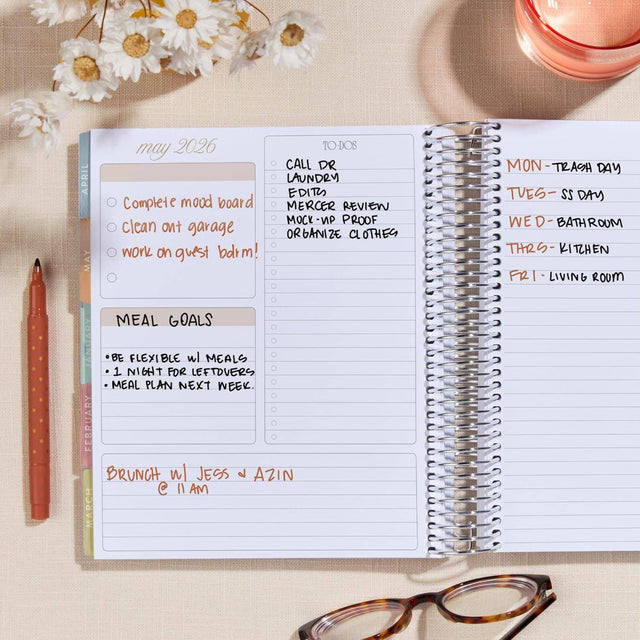 may 2026
Complete mood board
Clean out garage
work on guest bdrm!
MEAL GOALS
• BE FLEXIBLE w/ MEALS
• 1 NIGHT FOR LEFTOVERS
• MEAL PLAN NEXT WEEK.
TO-DOS
CALL DR
LAUNDRY
EDITS
MERCER REVIEW
MOCK-UP PROOF
ORGANIZE CLOTHES
BRUNCH w/ JESS & AZIN
@ 11 AM
MON - TRASH DAY
TUES - SS DAY
WED - BATHROOM
THRS - KITCHEN
FRI - LIVING ROOM
APRIL
MAY
JANUARY
FEBRUARY
MARCH